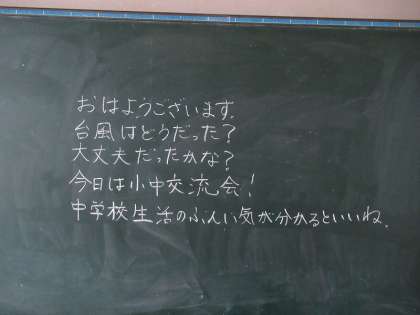 おはようございます。
台風はどうだった？
大丈夫だったかな？
今日は小中交流会！
中学校生活のふんい気が分かるといいね。